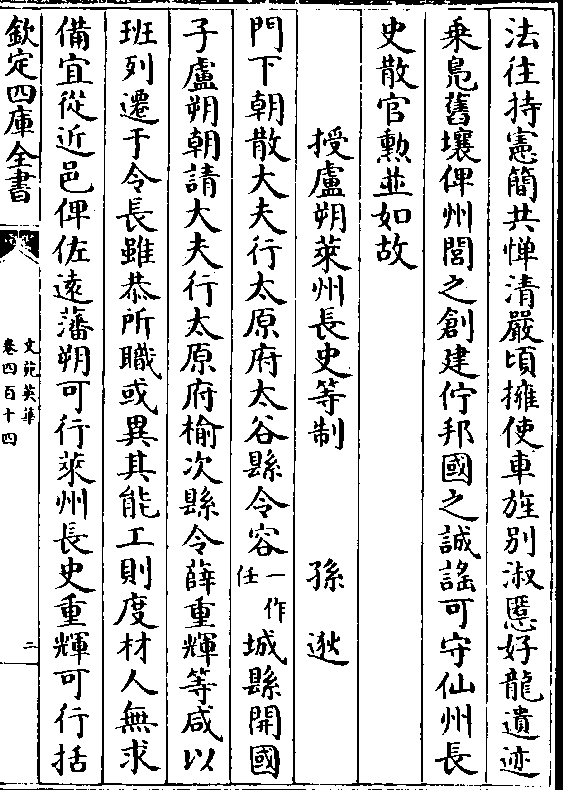 法往持憲簡共憚清嚴頃擁使車旌別淑慝好龍遺迹
乗鳬舊壤俾州閭之創建佇邦國之誠謡可守仙州長
史散官勲並如故
授盧朔萊州長史等制 孫逖
門下朝散大夫行太原府太谷縣令容一作任城縣開國
子盧朔朝請大夫行太原府榆次縣令薛重輝等咸以
班列遷于令長雖恭所職或異其能工則度材人無求
備宜從近邑俾佐遠藩朔可行萊州長史重輝可行括
欽定四庫全書
文苑英華
卷四百十四
二